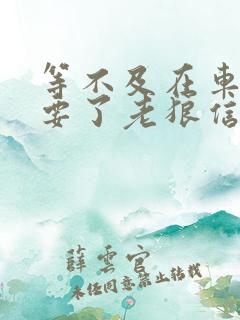 等不及在車
要了老狼信
薛雲官
未任同意禁止转载